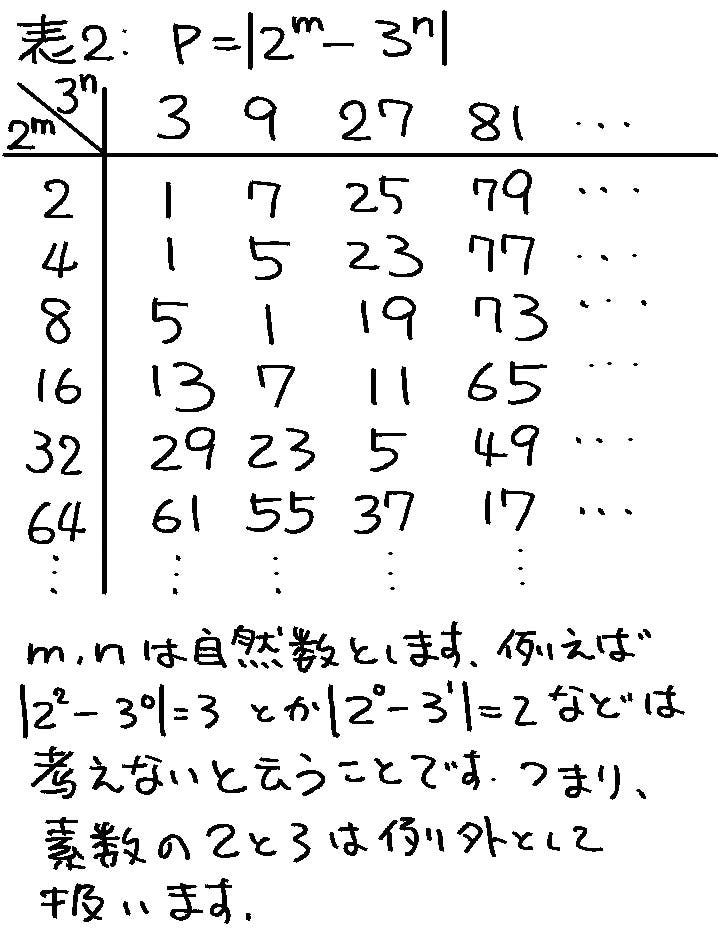 表2: P=|2^m − 3^n|
2^m \ 3^n 3 9 27 81 …
2 1 7 25 79 …
4 1 5 23 77 …
8 5 1 19 73 …
16 13 7 11 65 …
32 29 23 5 49 …
64 61 55 37 17 …
⋮ ⋮ ⋮ ⋮ ⋮
m,nは自然数とします、例えば
|2²−3⁰|=3 とか|2⁰−3¹|=2などは
考えないと云うことです. つまり、
素数の2と3は例外として
扱います.